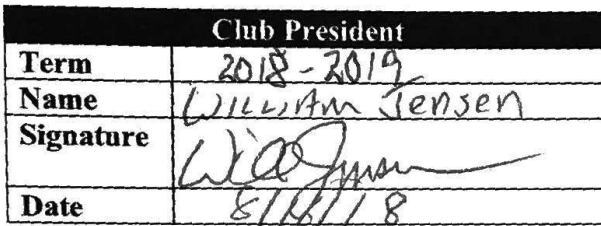 Club President
Term 2018-2019
Name William Jensen
Signature Will Jensen
Date